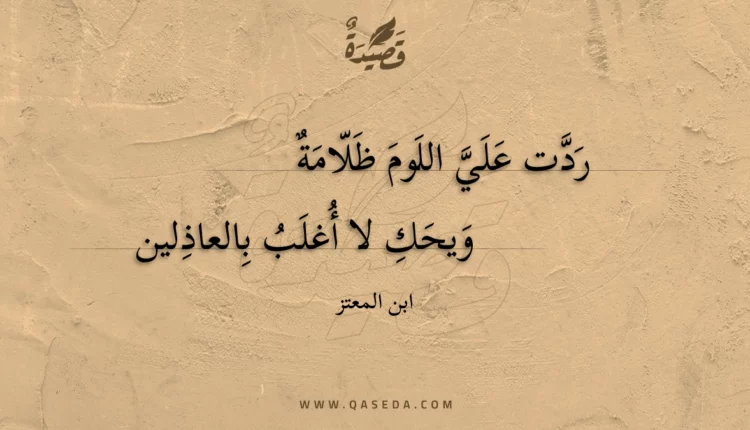 قَصِيدَةٌ
رَدَّت عَلَيَّ اللَومَ ظَلّامَةٌ
وَيحَكِ لا أُغلَبُ بِالعاذِلين
ابن المعتز
WWW.QASEDA.COM